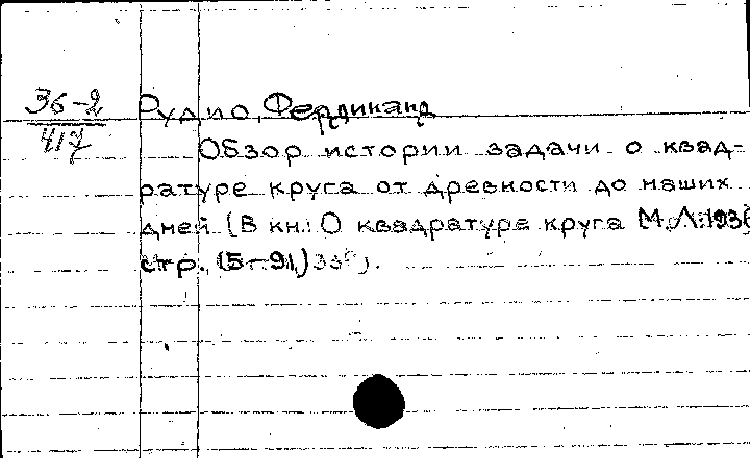 36-2
417
Рудио, Фердинанд
Обзор истории задачи о квад-
ратуре круга от древности до наших
дней (В кн.: О квадратуре круга М.Л. 1936
стр. (5-91)